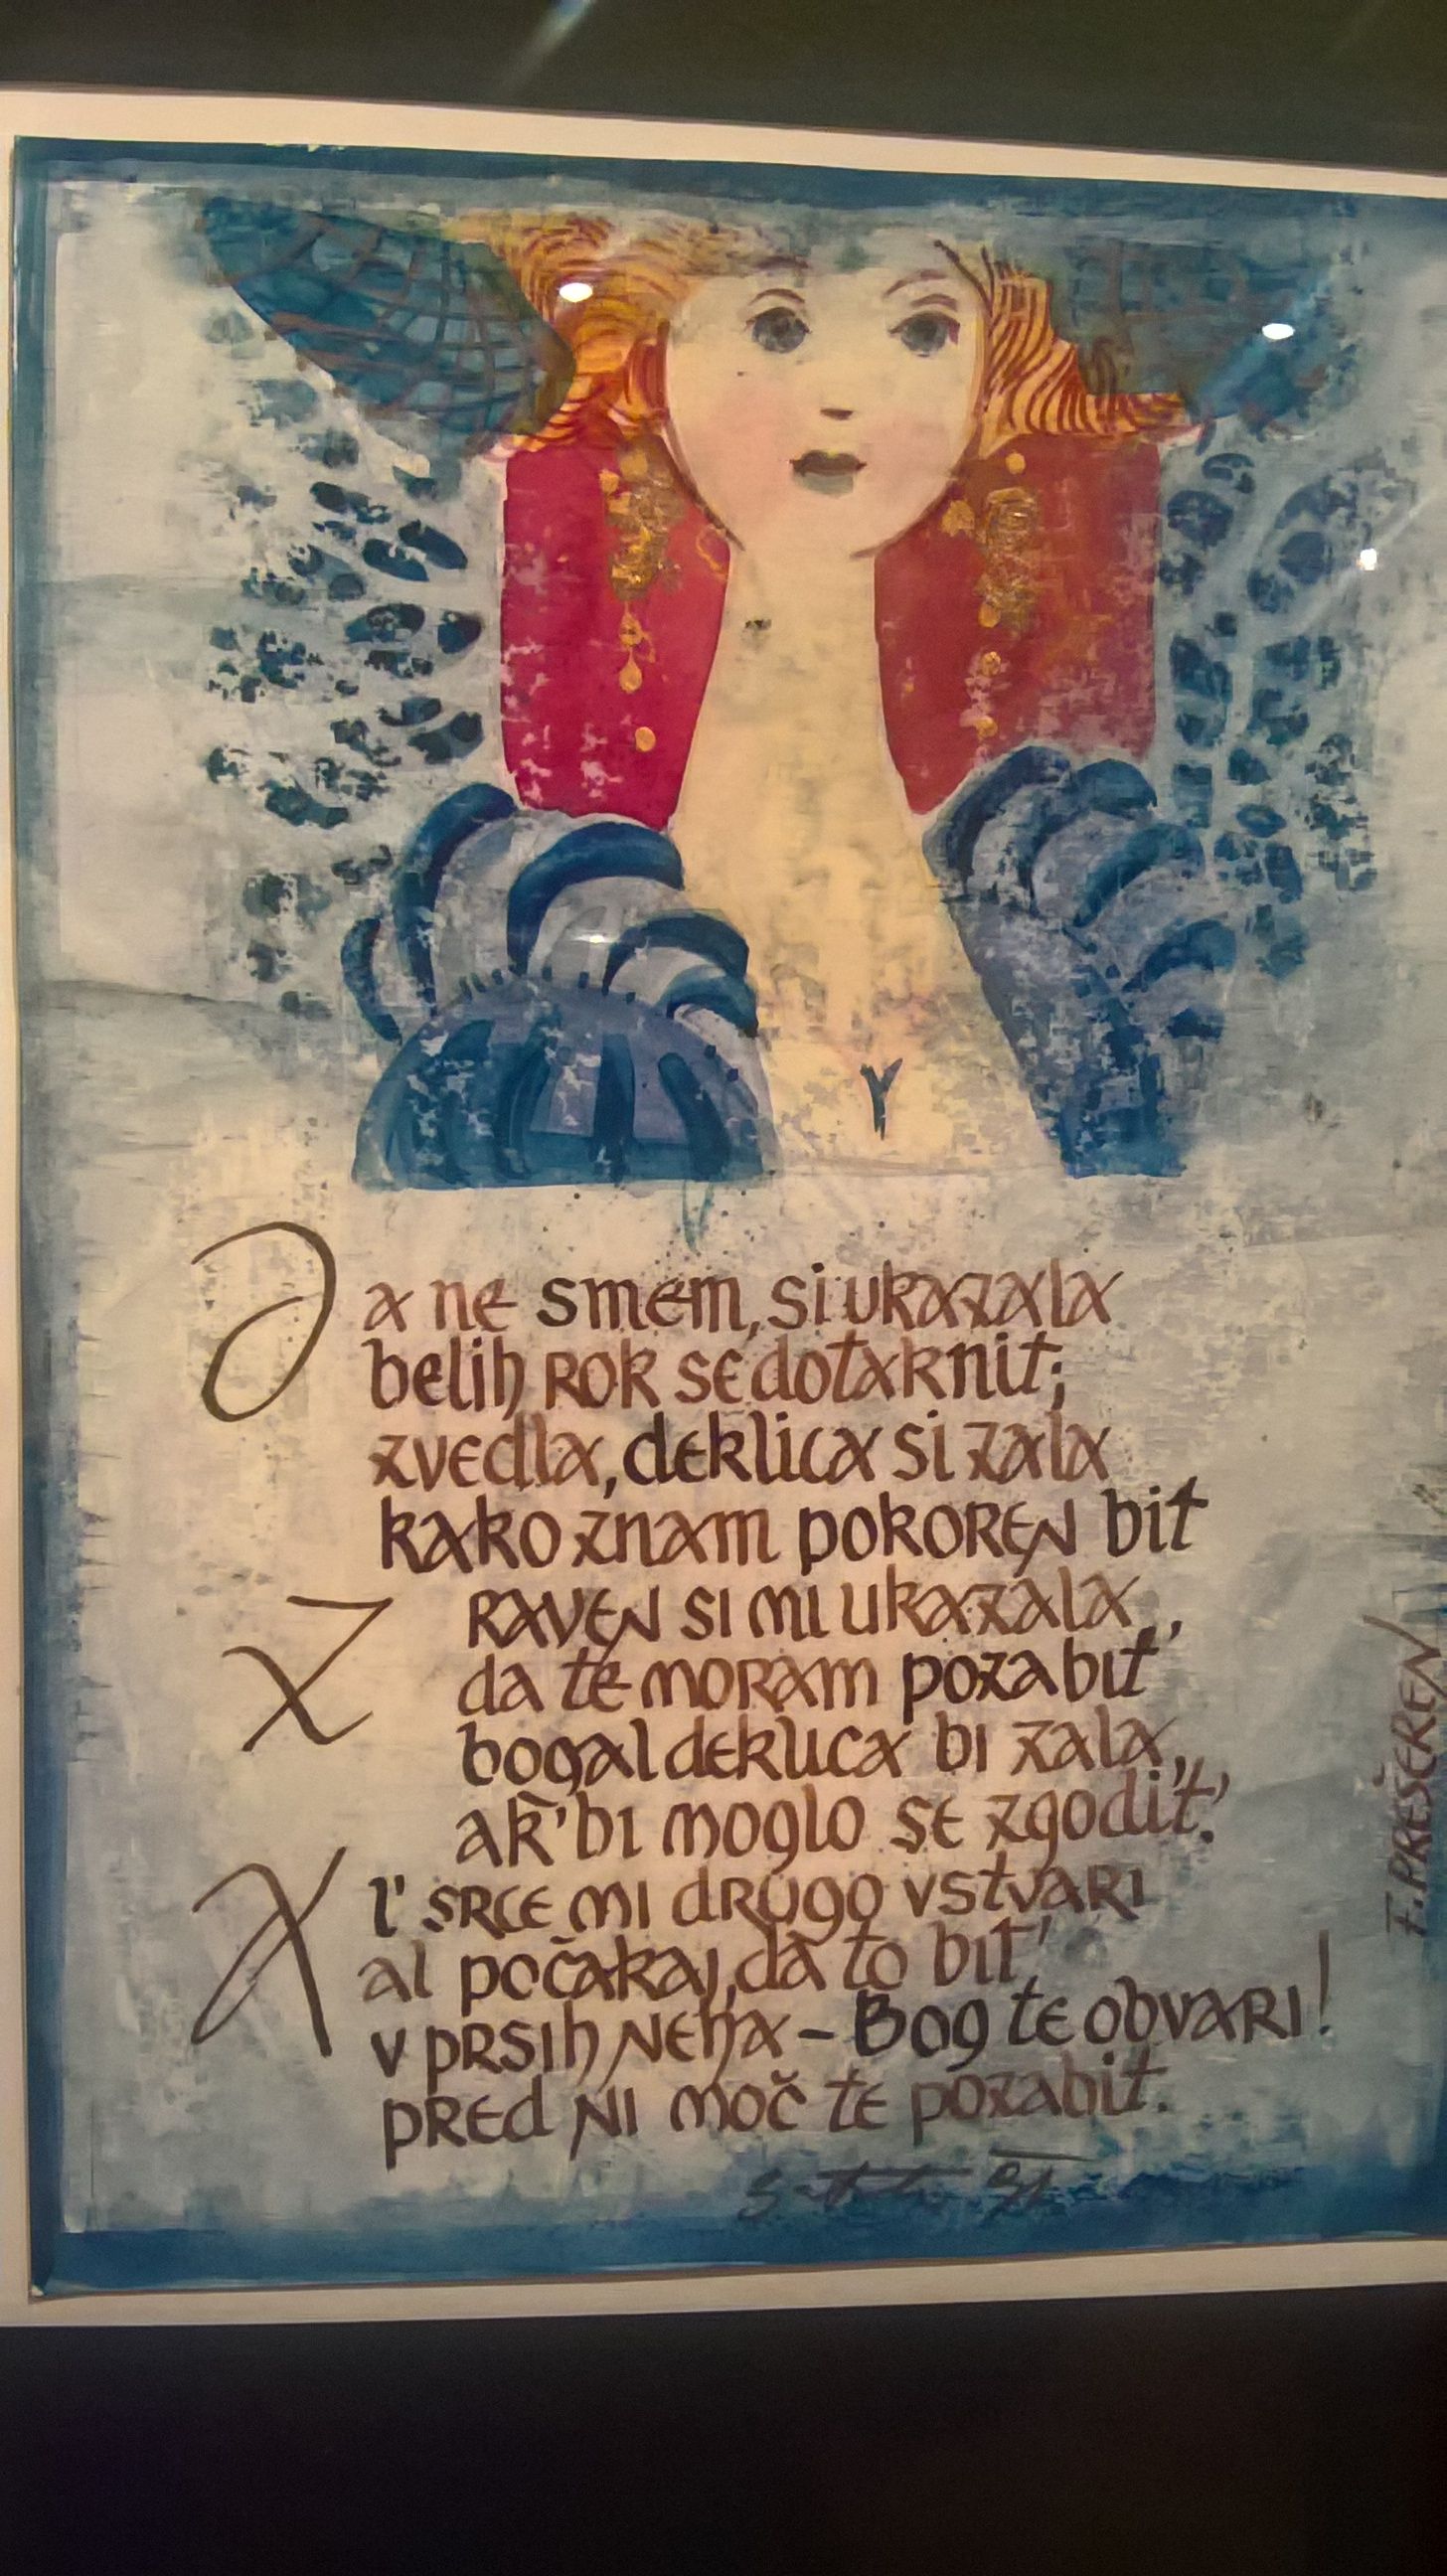 Da ne smem, si ukazala
belih rok se dotaknit;
zvedla, deklica si zala
kako znam pokoren bit
Zraven si mi ukazala,
da te moram pozabit'
bogal deklica bi zala,
ak' bi moglo se zgodit'.
Al' srce mi drugo vstvari
al počakaj, da to bit'
v prsih neha – Bog te obvari!
pred ni moč te pozabit.
F. PREŠEREN